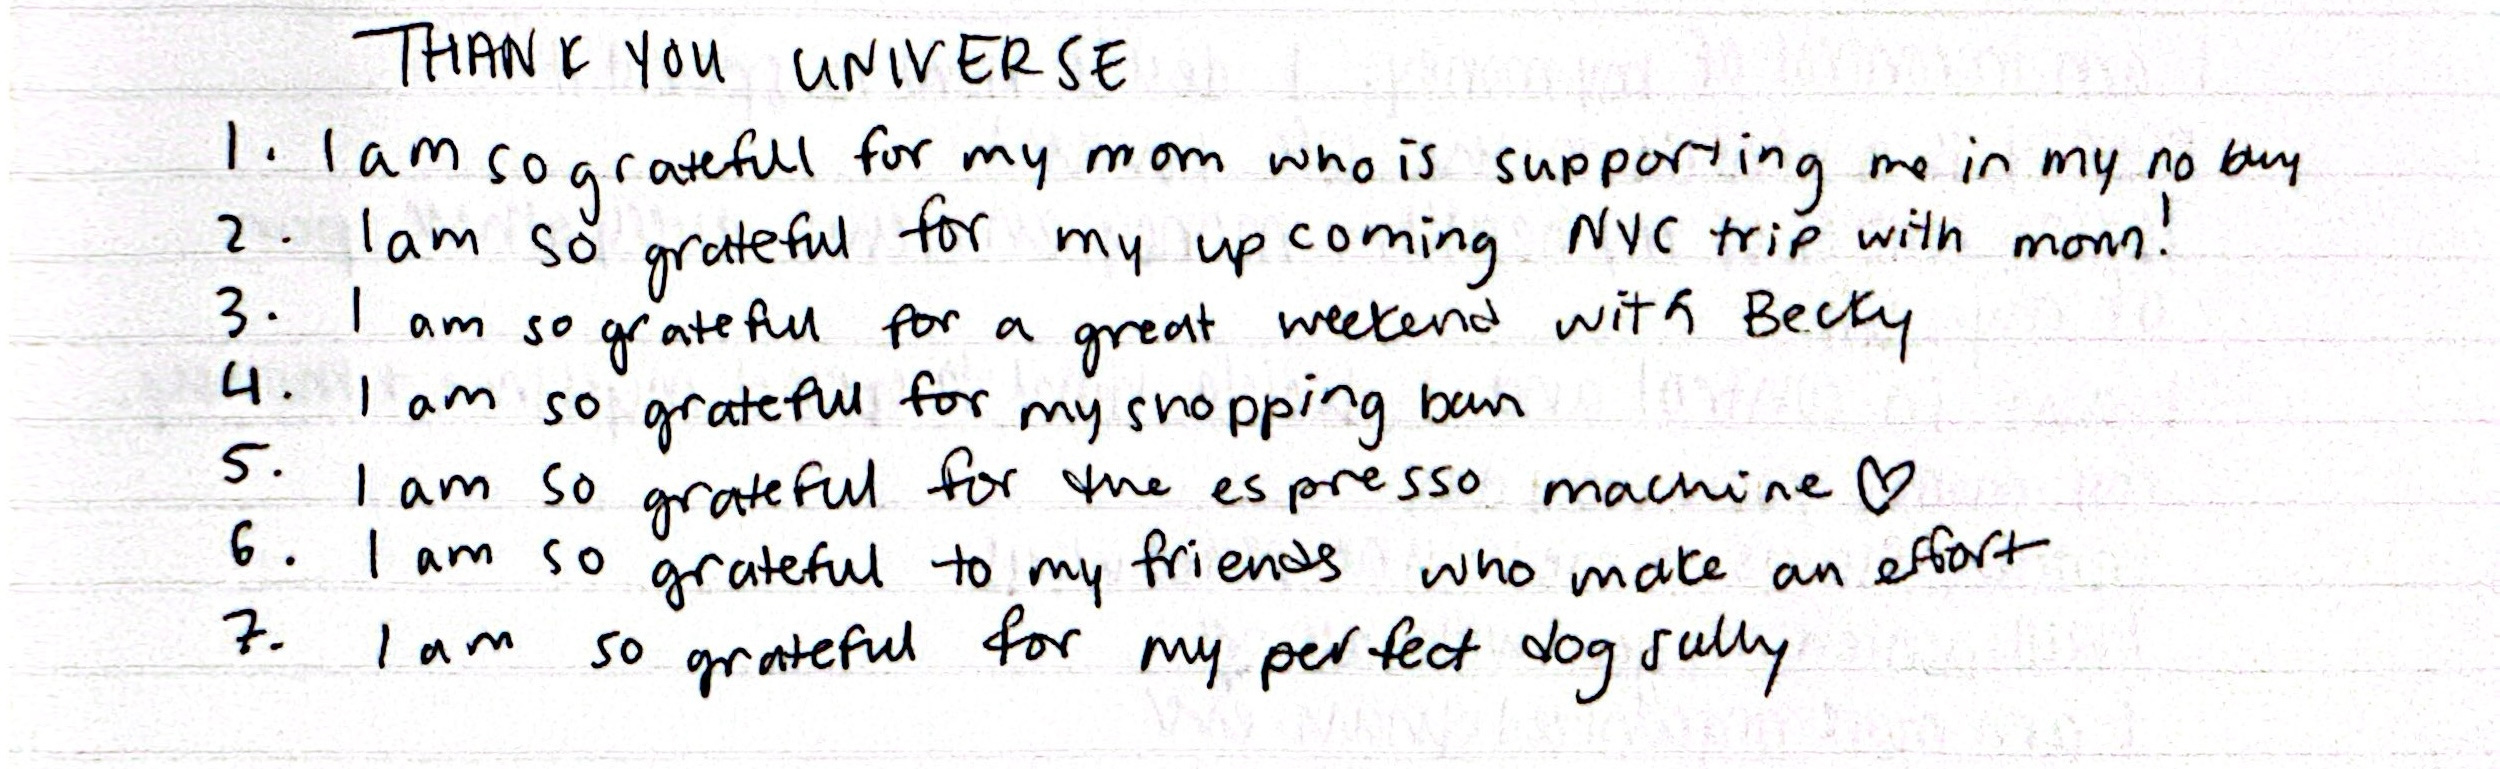 THANK YOU UNIVERSE
1. I am so grateful for my mom who is supporting me in my no buy
2. I am so grateful for my upcoming NYC trip with mom!
3. I am so grateful for a great weekend with Becky
4. I am so grateful for my shopping ban
5. I am so grateful for the espresso machine ♡
6. I am so grateful to my friends who make an effort
7. I am so grateful for my perfect dog sully